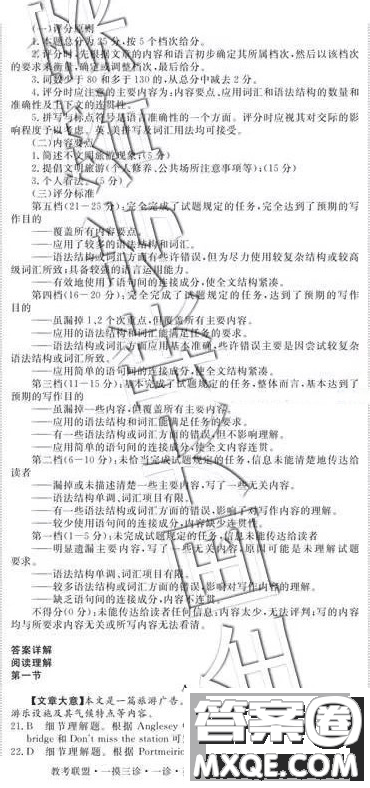 (一)评分原则
1.本题总分为25分,按5个档次给分。
2.评分时,先根据文章的内容和语言初步确定其所属档次,然后以该档次
的要求来衡量,确定或调整档次,最后给分。
3.词数少于80和多于130的,从总分中减去2分。
4.评分时应注意的主要内容为:内容要点、应用词汇和语法结构的数量和
准确性及上下文的连贯性。
5.拼写与标点符号是语言准确性的一个方面。评分时应视其对交际的影
响程度予以考虑。英、美拼写及词汇用法均可接受。
(二)内容要点
1.简述不文明旅游现象;(5分)
2.提倡文明旅游(个人修养、公共场所注意事项等);(15分)
3.个人看法。(5分)
(三)评分标准
第五档(21-25分):完全完成了试题规定的任务,完全达到了预期的写
作目的
——覆盖所有内容要点。
——应用了较多的语法结构和词汇。
——语法结构或词汇方面有些许错误,但为尽力使用较复杂结构或较高
级词汇所致;具备较强的语言运用能力。
——有效地使用了语句间的连接成分,使全文结构紧凑。
第四档(16-20分):完全完成了试题规定的任务,达到了预期的写作
目的
——虽漏掉1、2个次重点,但覆盖所有主要内容。
——应用的语法结构和词汇能满足任务的要求。
——语法结构或词汇方面应用基本准确,些许错误主要是因尝试较复杂
语法结构或词汇所致。
——应用简单的语句间的连接成分,使全文结构紧凑。
第三档(11-15分):基本完成了试题规定的任务,整体而言,基本达到了
预期的写作目的
——虽漏掉一些内容,但覆盖所有主要内容。
——应用的语法结构和词汇能满足任务的要求。
——有一些语法结构或词汇方面的错误,但不影响理解。
——应用简单的语句间的连接成分,使全文内容连贯。
第二档(6-10分):未恰当完成试题规定的任务,信息未能清楚地传达给
读者
——漏掉或未描述清楚一些主要内容,写了一些无关内容。
——语法结构单调、词汇项目有限。
——有一些语法结构或词汇方面的错误,影响了对写作内容的理解。
——较少使用语句间的连接成分,内容缺少连贯性。
第一档(1-5分):未完成试题规定的任务,信息未能传达给读者
——明显遗漏主要内容,写了一些无关内容,原因可能是未理解试题
要求。
——语法结构单调、词汇项目有限。
——较多语法结构或词汇方面的错误,影响对写作内容的理解。
——缺乏语句间的连接成分,内容不连贯。
不得分(0分):未能传达给读者任何信息:内容太少,无法评判;写的内容
均与所要求内容无关或所写内容无法看清。
答案详解
阅读理解
第一节
A
【文章大意】本文是一篇旅游广告。
游乐设施及其气候特点等内容。
21.B 细节理解题。根据 Anglesey
bridge 和 Don't miss the station 可
22.D 细节理解题。根据 Portmeiric
教考联盟·一摸三诊·一诊·
答案圈
MXQE.COM